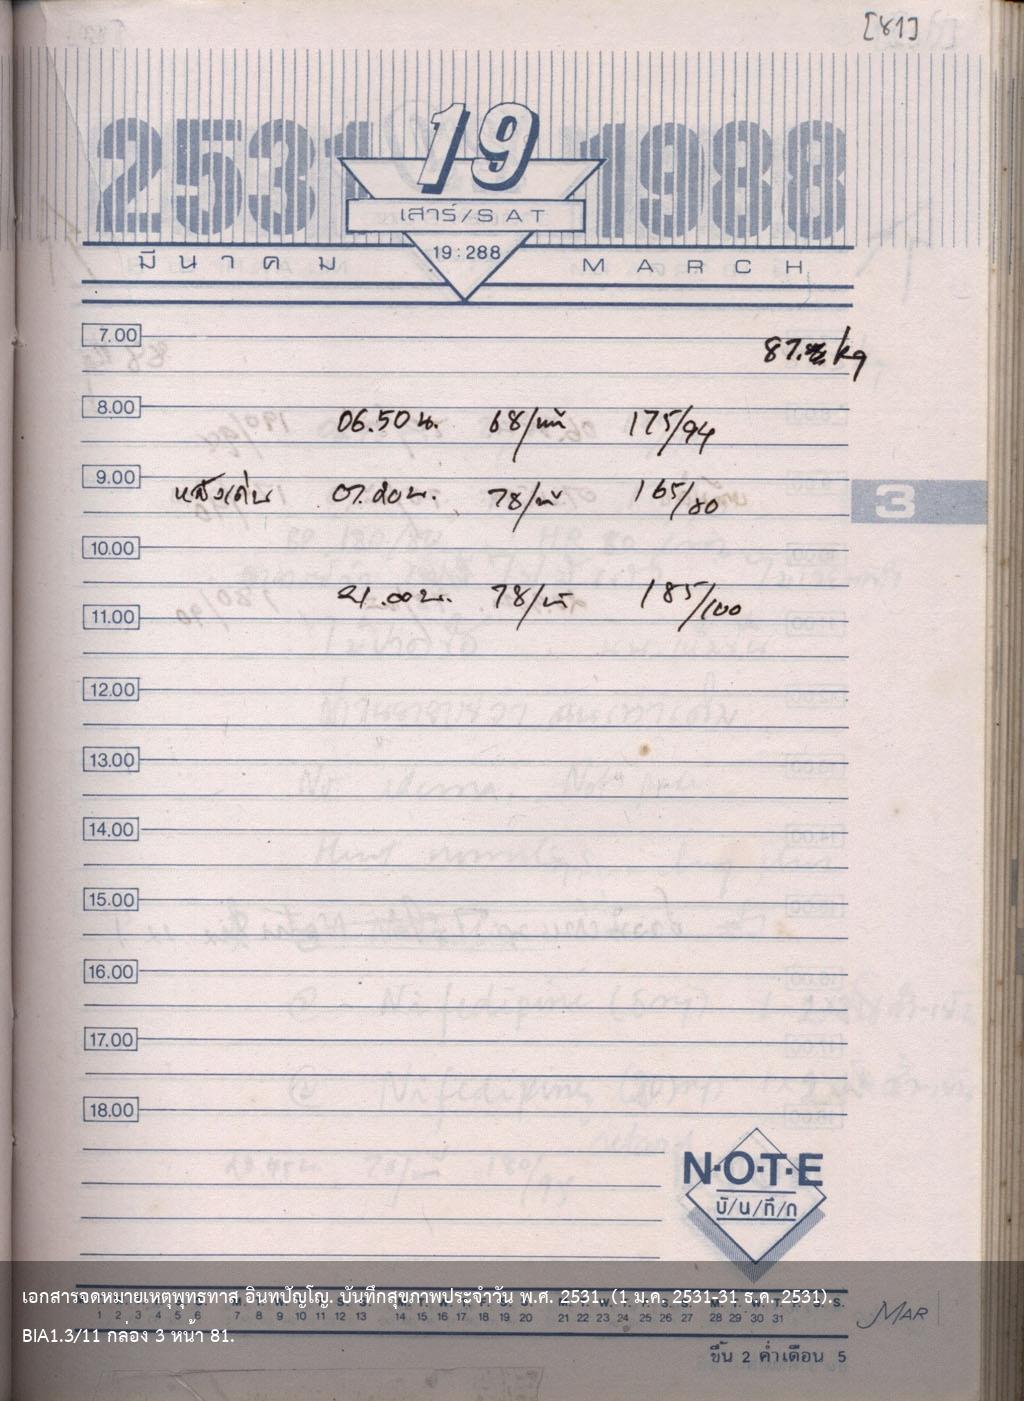 [81]
2531 19 1988
เสาร์/SAT
19:288
มีนาคม MARCH
7.00
87. kg
8.00
06.50 น. 68/นาที 175/94
9.00
หลังเดิน 07.20 น. 78/นาที 165/80
3
10.00
21.00 น. 78/นาที 185/100
11.00
12.00
13.00
14.00
15.00
16.00
17.00
18.00
N·O·T·E
บั/น/ทึ/ก
เอกสารจดหมายเหตุพุทธทาส อินทปัญโญ. บันทึกสุขภาพประจำวัน พ.ศ. 2531. (1 ม.ค. 2531-31 ธ.ค. 2531).
1 2 3 4 5 6 7 8 9 10 11 12 13 14 15 16 17 18 19 20 21 22 23 24 25 26 27 28 29 30 31
MAR
BIA1.3/11 กล่อง 3 หน้า 81.
ขึ้น 2 ค่ำเดือน 5